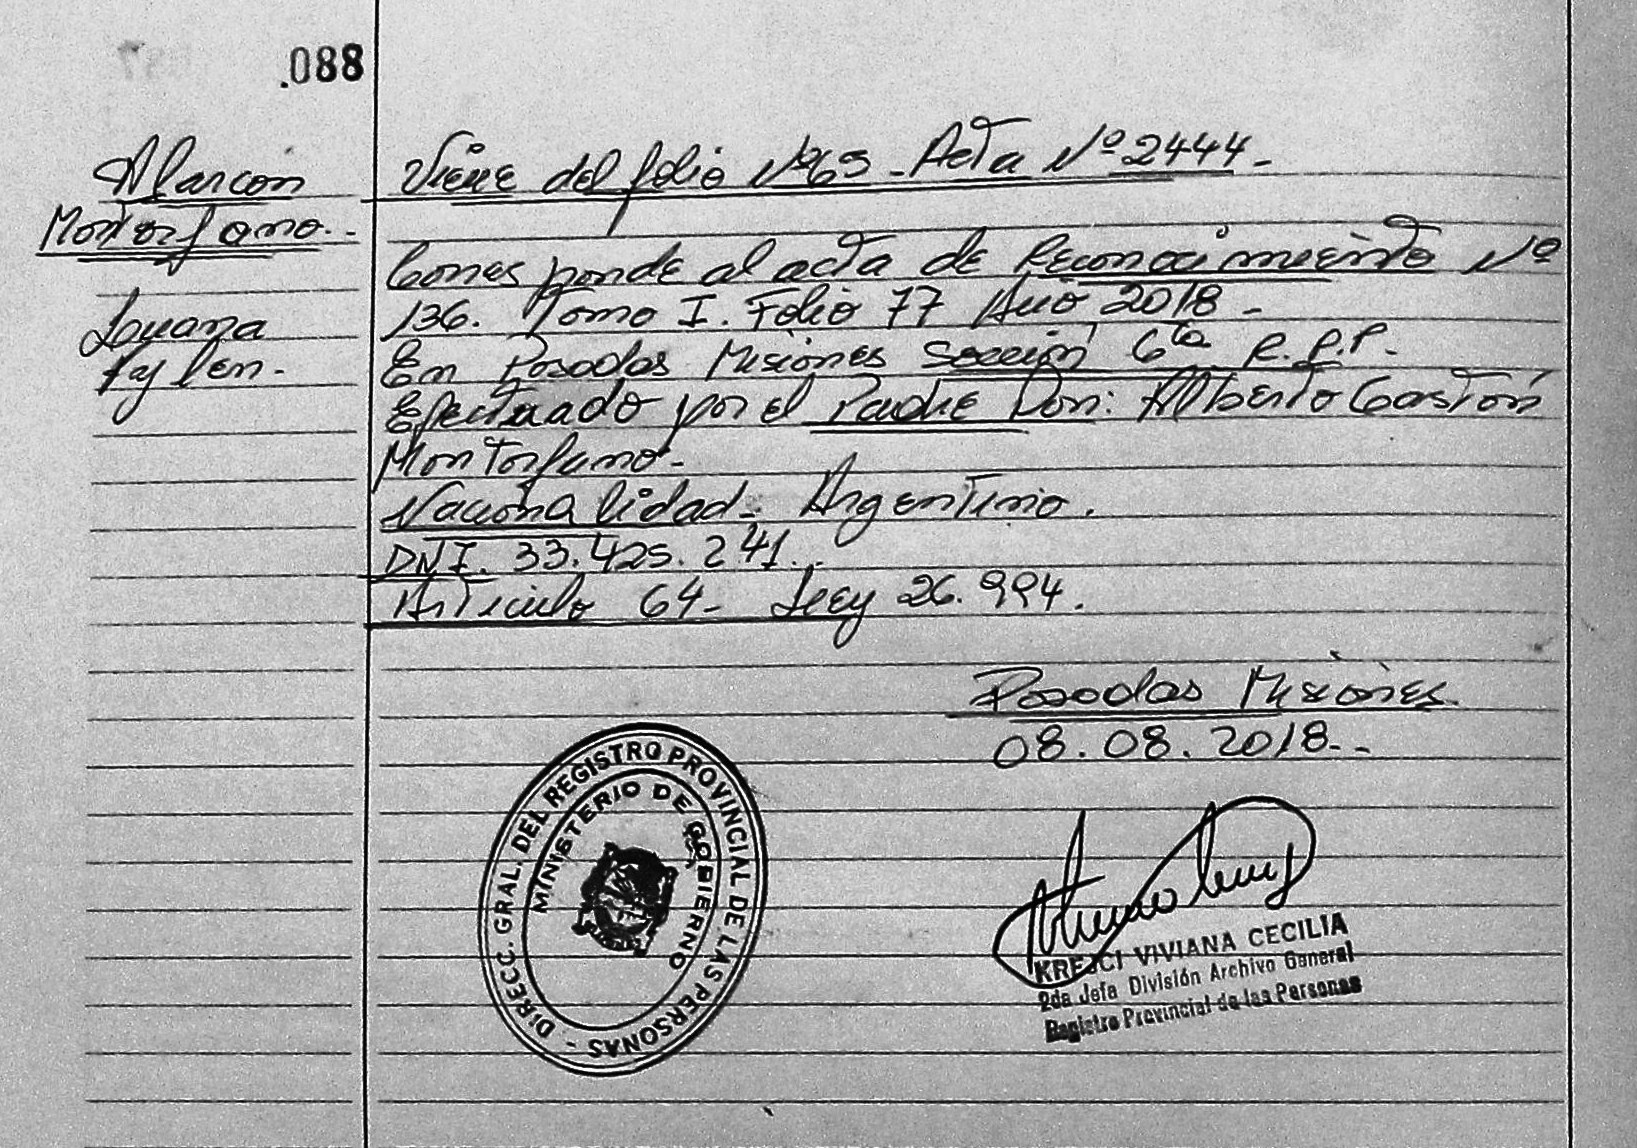 .088
Alarcon
Montorfano..
Louana
Aylen.
Viene del folio Nº 65 - Acta Nº 2444 -
Corresponde al acta de Reconocimiento Nº
136. Tomo I. Folio 77 Año 2018 -
En Posadas Misiones Sección 6ta R.P.P.
Efectuado por el Padre Don: Alberto Gastón
Montorfano -
Nacionalidad - Argentino.
DNI. 33.425.241..
Articulo 64 - Ley 26.994.
Posadas Misiones.
08.08.2018..
DIRECC. GRAL. DEL REGISTRO PROVINCIAL DE LAS PERSONAS -
MINISTERIO DE GOBIERNO
KREJCI VIVIANA CECILIA
2da Jefa División Archivo General
Registro Provincial de las Personas